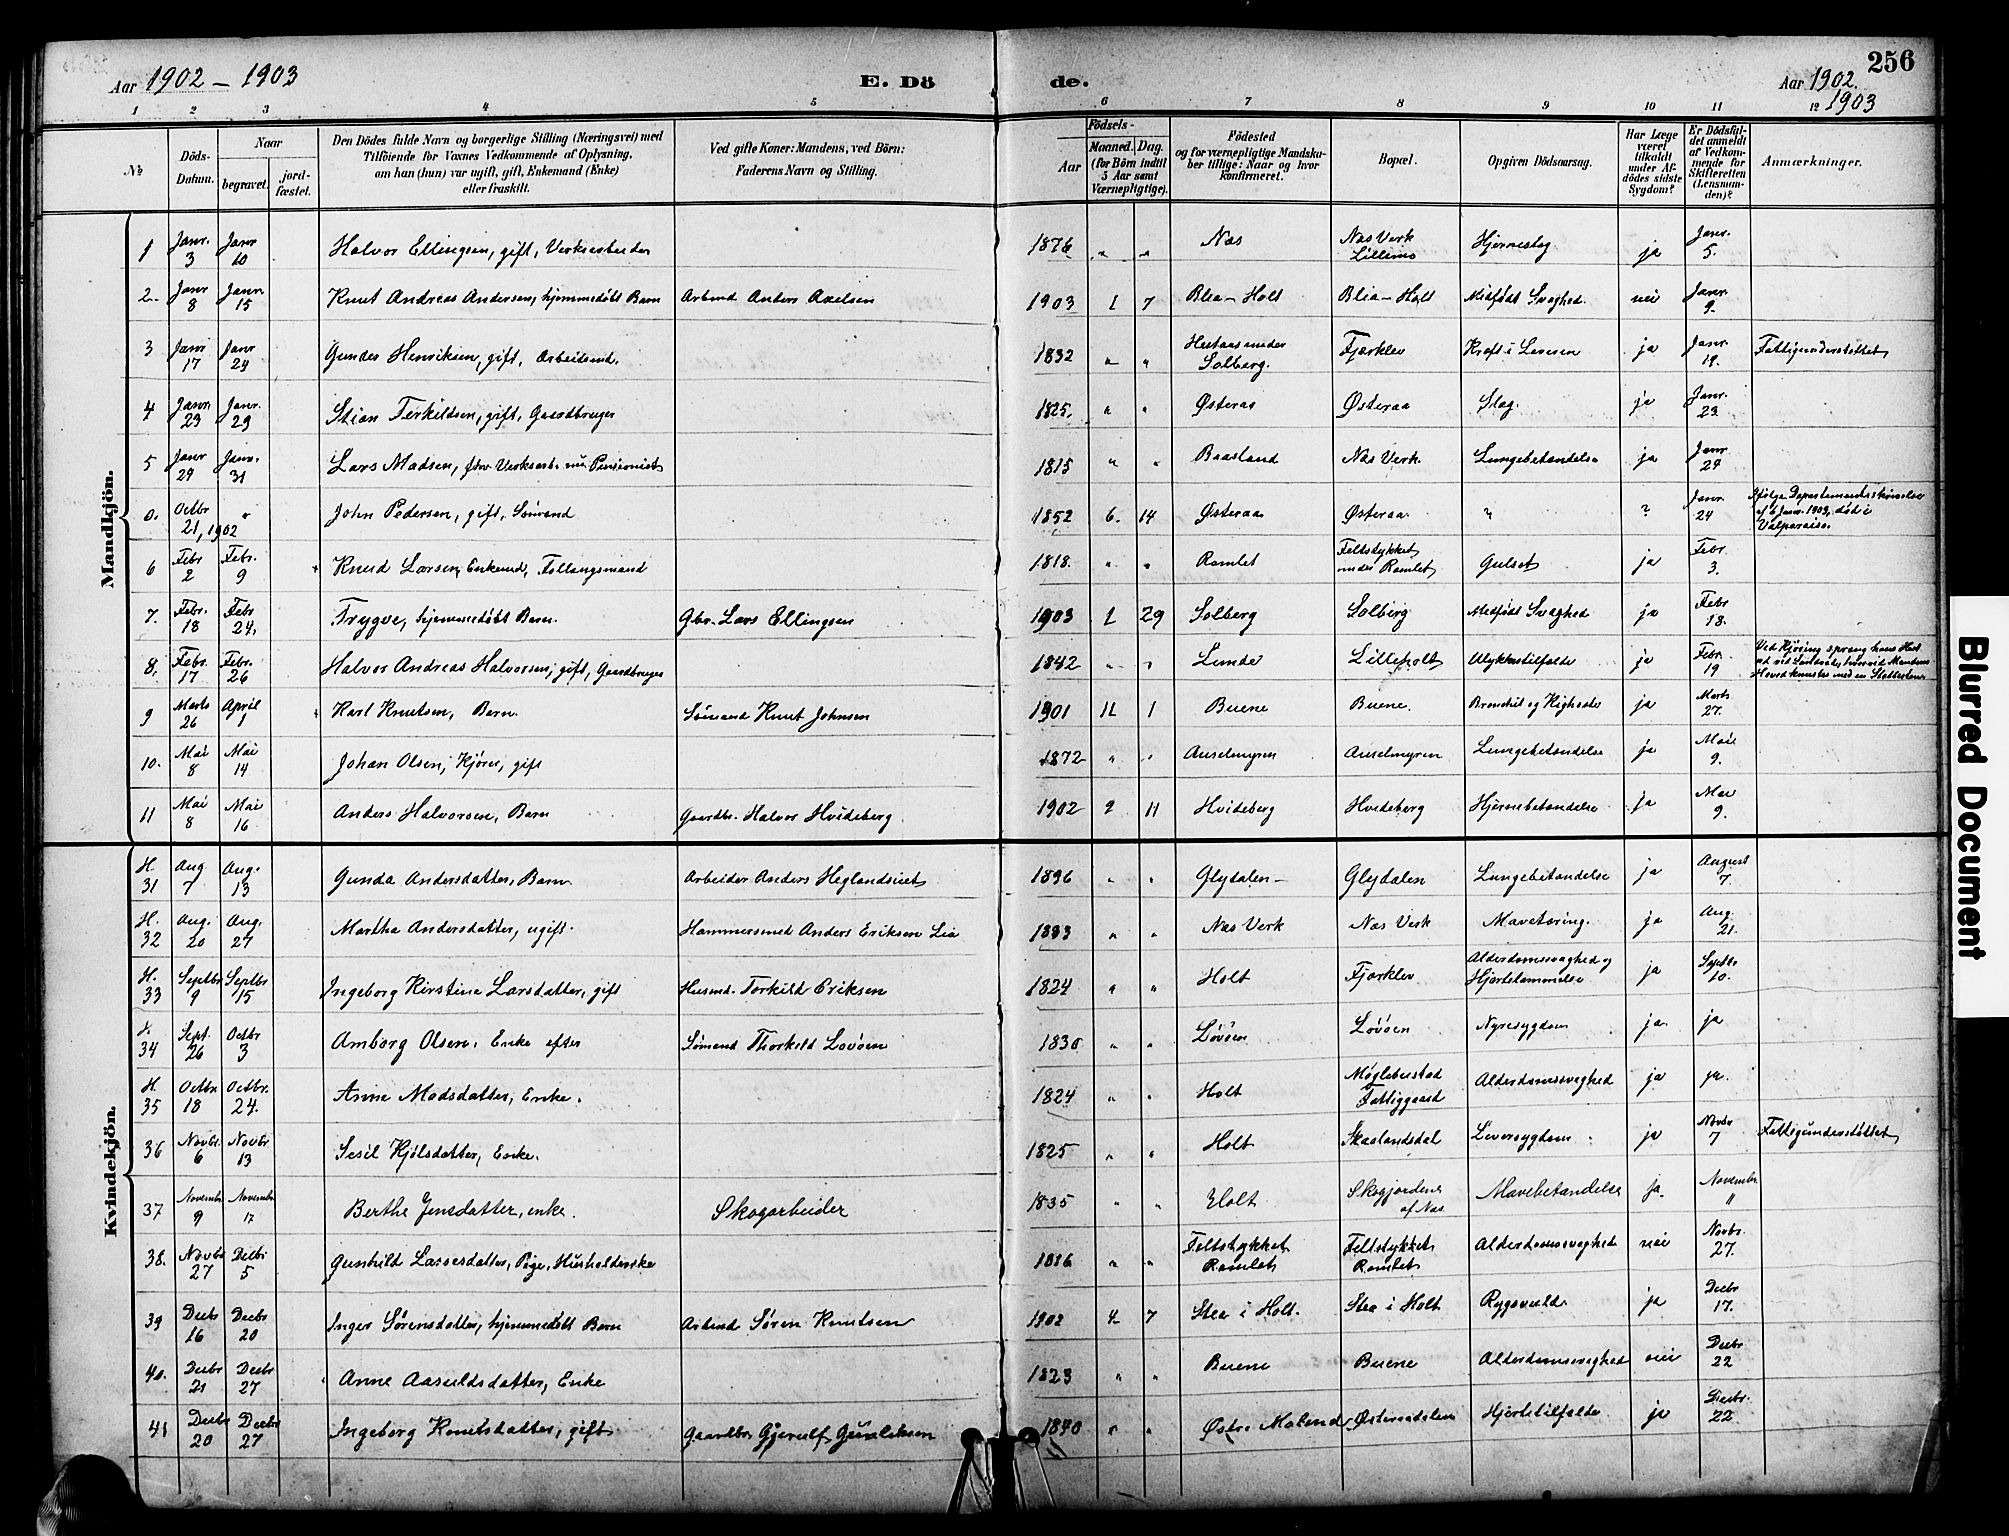 256
Aar 1902 – 1903 E. Dö de. Aar 1902.
1903
1 2 3 4 5 6 7 8 9 10 11 12
№
Döds-Datum.
Naar
begravet.
jord-fæstet.
Den Dödes fulde Navn og borgerlige Stilling (Næringsvei) med
Tilföiende for Voxnes Vedkommende af Oplysning,
om han (hun) var ugift, gift, Enkemand (Enke)
eller fraskilt.
Ved gifte Koner: Mandens, ved Börn:
Faderens Navn og Stilling.
Födsels-
Aar
Maaned. Dag.
(for Börn indtil
5 Aar samt
Værnepligtige).
Födested
og for værnepligtige Mandska-
ber tillige: Naar og hvor
konfirmeret.
Bopæl.
Opgiven Dödsaarsag.
Har Læge
været
tilkaldt
under Af-
dödes sidste
Sygdom?
Er Dödsfal-
det anmeldt
af Vedkom-
mende for
Skifteretten
(Lensman-
den)?
Anmærkninger.
Mandkjön.
1 Janr. 3 Janr 10 Halvor Ellingsen, gift, Verksarbeider 1876 " " Nas Nas Verk Lillemo Hjerneslag ja Janr. 5.
2 Janr 8 Janr. 15 Knut Andreas Andersen, hjemmedøbt Barn Arbmd Anders Axelsen 1903 1 7 Blia – Holt Blia – Holt Medfødt Svaghed. nei Janr. 9.
3 Janr 17 Janr 24 Gunder Henriksen, gift, Arbeidsmd. 1832 " " Solberg. Fjærklev Kræft i Leveren ja Janr. 19. Fattigunderstøttet
4 Janr 23 Janr. 29 Stian Terkildsen, gift, Gaardbruger 1825. " " Østeraa Østeraa Slag. ja Janr. 23.
5 Janr 24 Janr. 31 Lars Madsen, fhv. Verksarb. nu Pensionist 1815 " " Baasland Nas Verk. Lungebetændelse ja Janr 24
0. Octbr 21, 1902 " John Pedersen, gift, Sømand 1852 6. 14 Østeraa Østeraa ? ? Janr. 24 Ifølge Departementsskrivelse af 6 Janr. 1903, død i Valparaiso.
6 Febr 2 Febr. 9 Knud Larsen, Enkemd, Follaugsmand 1818. " " Ramlet Feltstykket under Ramlet Gulsot ja Febr 3.
7. Febr. 18 Febr 24, Trygve, hjemmedøbt Barn. Gbr. Lars Ellingsen 1903 1 29 Solberg Solberg Medfødt Svaghed ja Febr 18.
8. Febr. 17 Febr. 26 Halvor Andreas Halvorsen, gift, Gaardbruger 1842 " " Lunde Lilleholt Ulykkestilfælde ja Febr. 19 Ved Kjøring sprang hans Hest
9 Marts 26 April 1 Karl Knutsen, Barn. Sømand Knut Johnsen 1901 11 1 Buene Buene. Bronchit og Kighoste ja Marts 27.
10. Mai 8 Mai 14 Johan Olsen, Kjører, gift 1872 " " Auselmyren Auselmyren Lungebetændelse ja Mai 9.
11 Mai 8 Mai 16 Anders Halvorsen, Barn Gaardbr. Halvor Hvideberg 1902 9 11 Hvideberg Hvideberg Hjernebetændelse ja Mai 9.
Kvindekjön.
H. 31 Aug 7 Aug. 13 Gunda Andersdatter, Barn Arbeider Anders Heglandsveit 1896 " " Glydalen – Glydalen Lungebetændelse ja August 7.
H. 32 Aug. 20 Aug. 27 Martha Andersdatter, ugift. Hammersmed Anders Eriksen Lia 1883 " " Nas Verk Nas Verk Mavetæring. ja Aug. 21.
H. 33 Septbr 9 Septbr 15 Ingeborg Kirstine Larsdatter, gift Husmd. Torkild Eriksen 1824 " " Holt Fjærklev Alderdomssvaghed og Hjertelammelse ja Septbr 10.
H. 34 Sept. 26 Octbr 3 Amborg Olsen, Enke efter Sømand Thorkild Lovøen 1830 " " Løvøen Løvøen Nyresygdom ja ja
H. 35 Octbr 18 Octbr. 24. Anne Madsdatter, Enke. 1824 " " Holt Møglebustad Fattiggaard Alderdomssvaghed ja ja.
36 Novbr. 6 Novbr 13 Sesil Kjølsdatter, Enke. 1825 " " Holt Skaalandsdal Leversygdom ja Novbr 7 Fattigunderstøttet
37 Novembr 9 Novembr 17 Berthe Jensdatter, enke. Skogarbeider 1835 " " Holt Skogjordene af Nas Mavebetændelse ja. Novembr 11
38. Novbr 27 Decbr 5 Gunhild Lassesdatter, Pige, Husholderske 1816 " " Feltstykket Ramlet Feltstykket Ramlet Alderdomssvaghed nei Novbr. 27.
39 Decbr 16 Decbr 20 Inger Sørensdatter, hjemmedøbt Barn Arbmd Søren Knutsen 1902 4 7 Stea i Holt. Stea i Holt Rygsvuld. ja Decbr 17.
40. Decbr 21 Decbr 27 Anne Aasuldsdatter, Enke 1823 " " Buene Buene Alderdomssvaghed nei Decbr 22
41 Decbr 20 Decbr 27 Ingeborg Knutsdatter, gift Gaardbr. Gjerulf Gunleksen 1840 " " Østre Moland Østeraadalen Hjertetilfælde ja Decbr. 22
Blurred Document